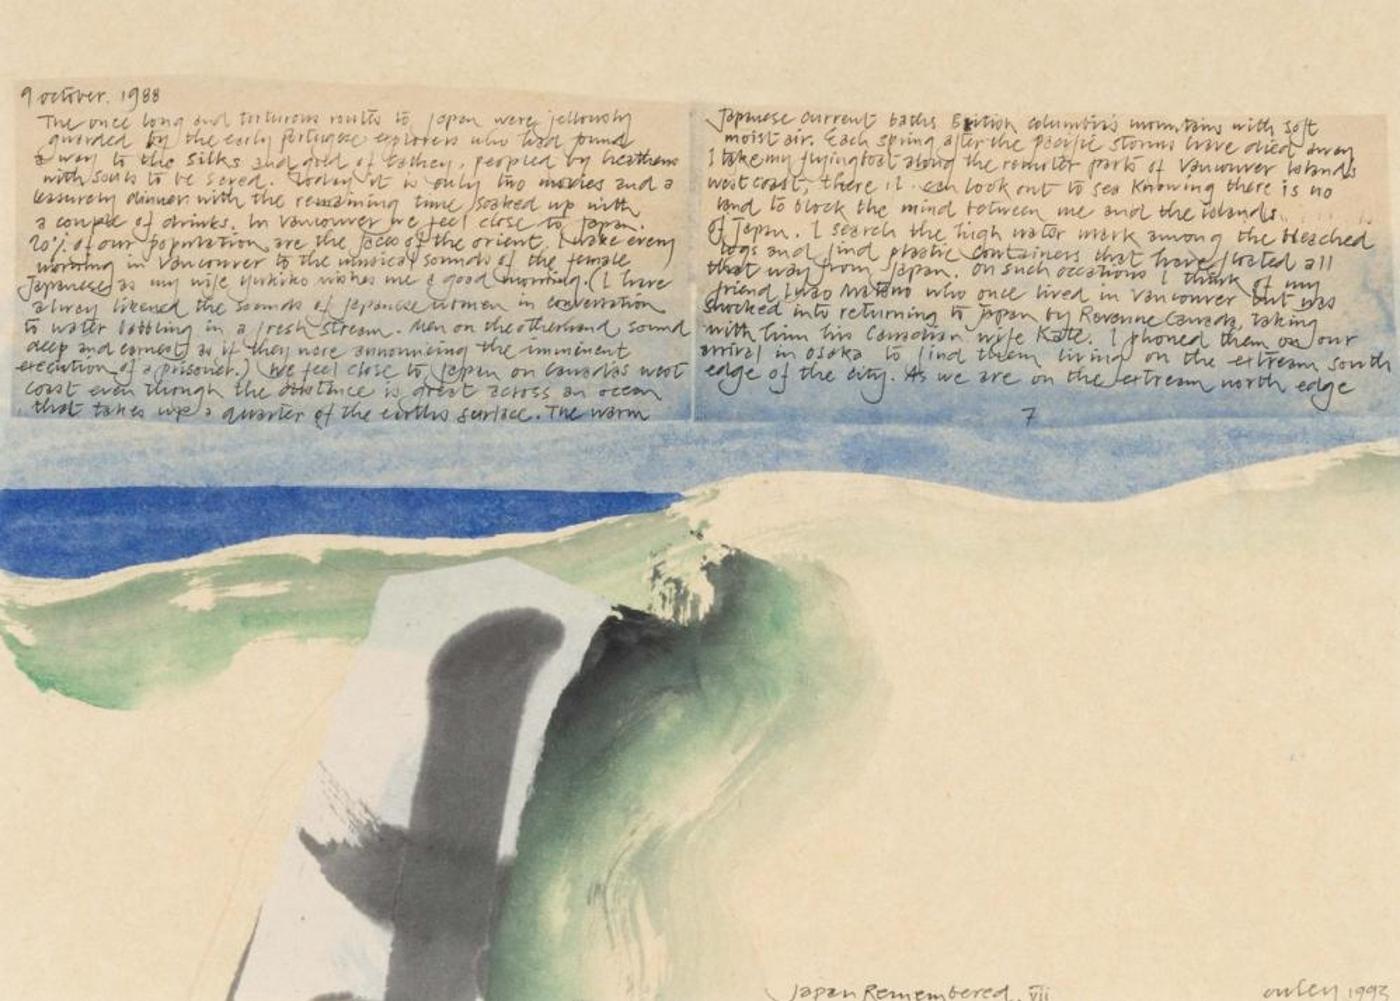 9 october. 1988
The once long and torturous routes to Japan were jellously
guarded by the early Portugese explorers who had found
a way to the silks and gold of Cathey, peopled by heathens
with souls to be saved. Today it is only two movies and a
leasurely dinner with the remaining time soaked up with
a couple of drinks. In Vancouver we feel close to Japan.
20% of our population are the faces of the orient. I wake every
morning in Vancouver to the musical sounds of the female
Japanese as my wife Yukiko wishes me a good morning. (I have
alway likened the sounds of Japanese women in conversation
to water bobbling in a fresh stream. Men on the otherhand sound
deep and earnest as if they were announcing the imminent
execution of a prisoner.) We feel close to Japan on Canadas west
coast even though the distance is great across an ocean
that takes up a quarter of the earths surface. The warm
Japanese current baths British Columbia's mountains with soft
moist air. Each spring after the pacific storms have died away
I take my flyingboat along the remoter parts of Vancouver Islands
west coast, there I can look out to sea knowing there is no
land to block the mind between me and the islands
of Japan. I search the high water mark among the bleached
logs and find plastic containers that have floated all
that way from Japan. On such occations I think of my
friend who once lived in Vancouver but was
shocked into returning to Japan by Revenue Canada, taking
with him his Canadian wife Kate. I phoned them on our
arrival in Osaka to find them living on the extream south
edge of the city. As we are on the extream north edge
7
Japan Remembered. VII
onley 1992